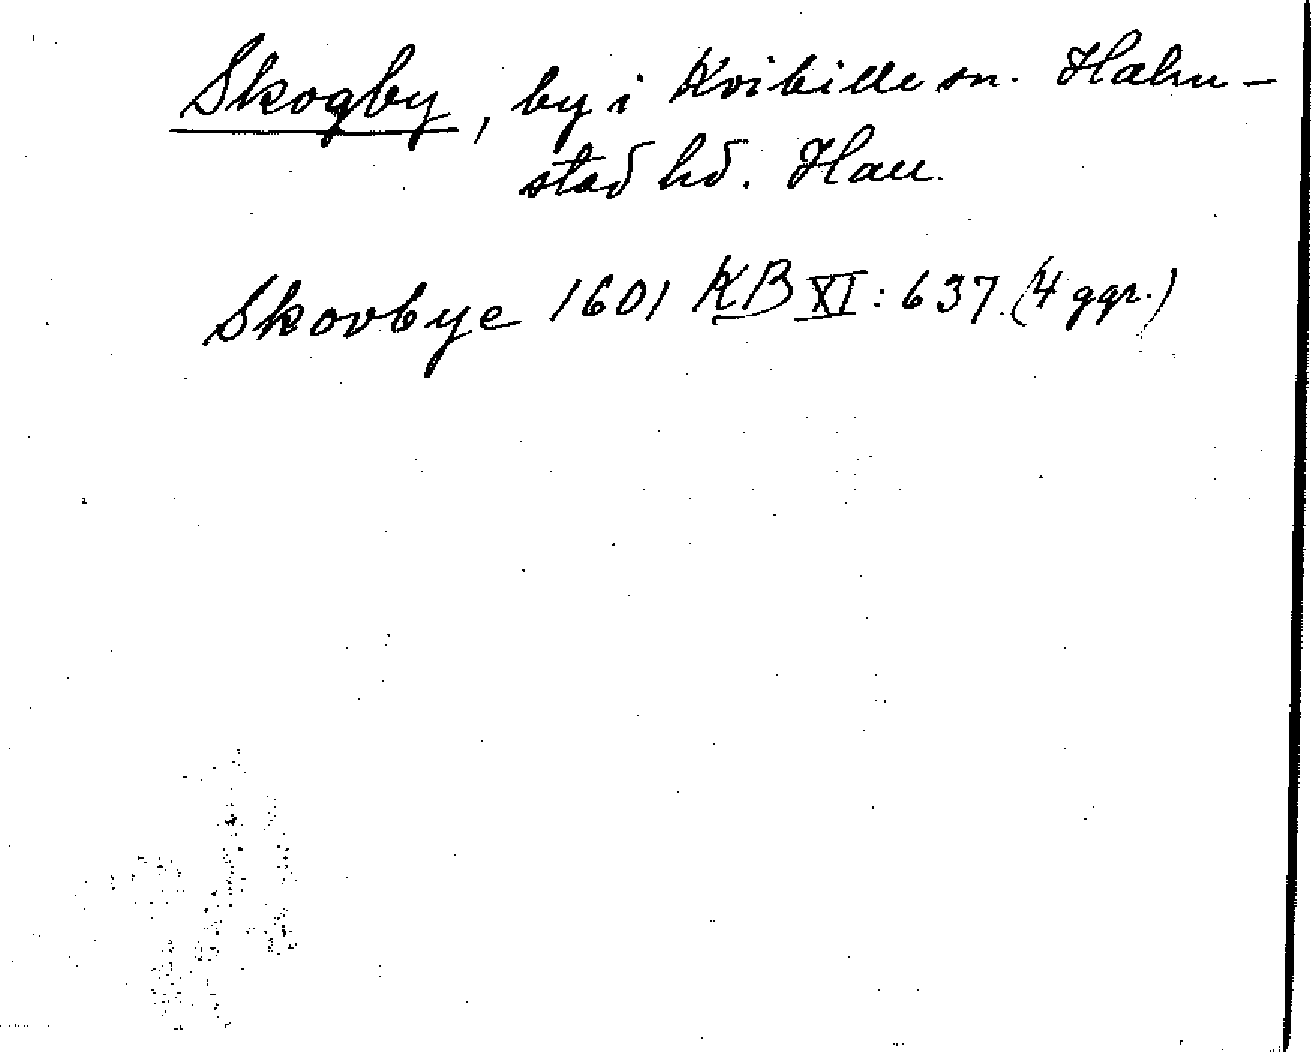 Skogby, by i Kvibille sn. Halm-
stad hd. Hall.
Skovbye 1601 KB XI: 637. (4 ggr.)